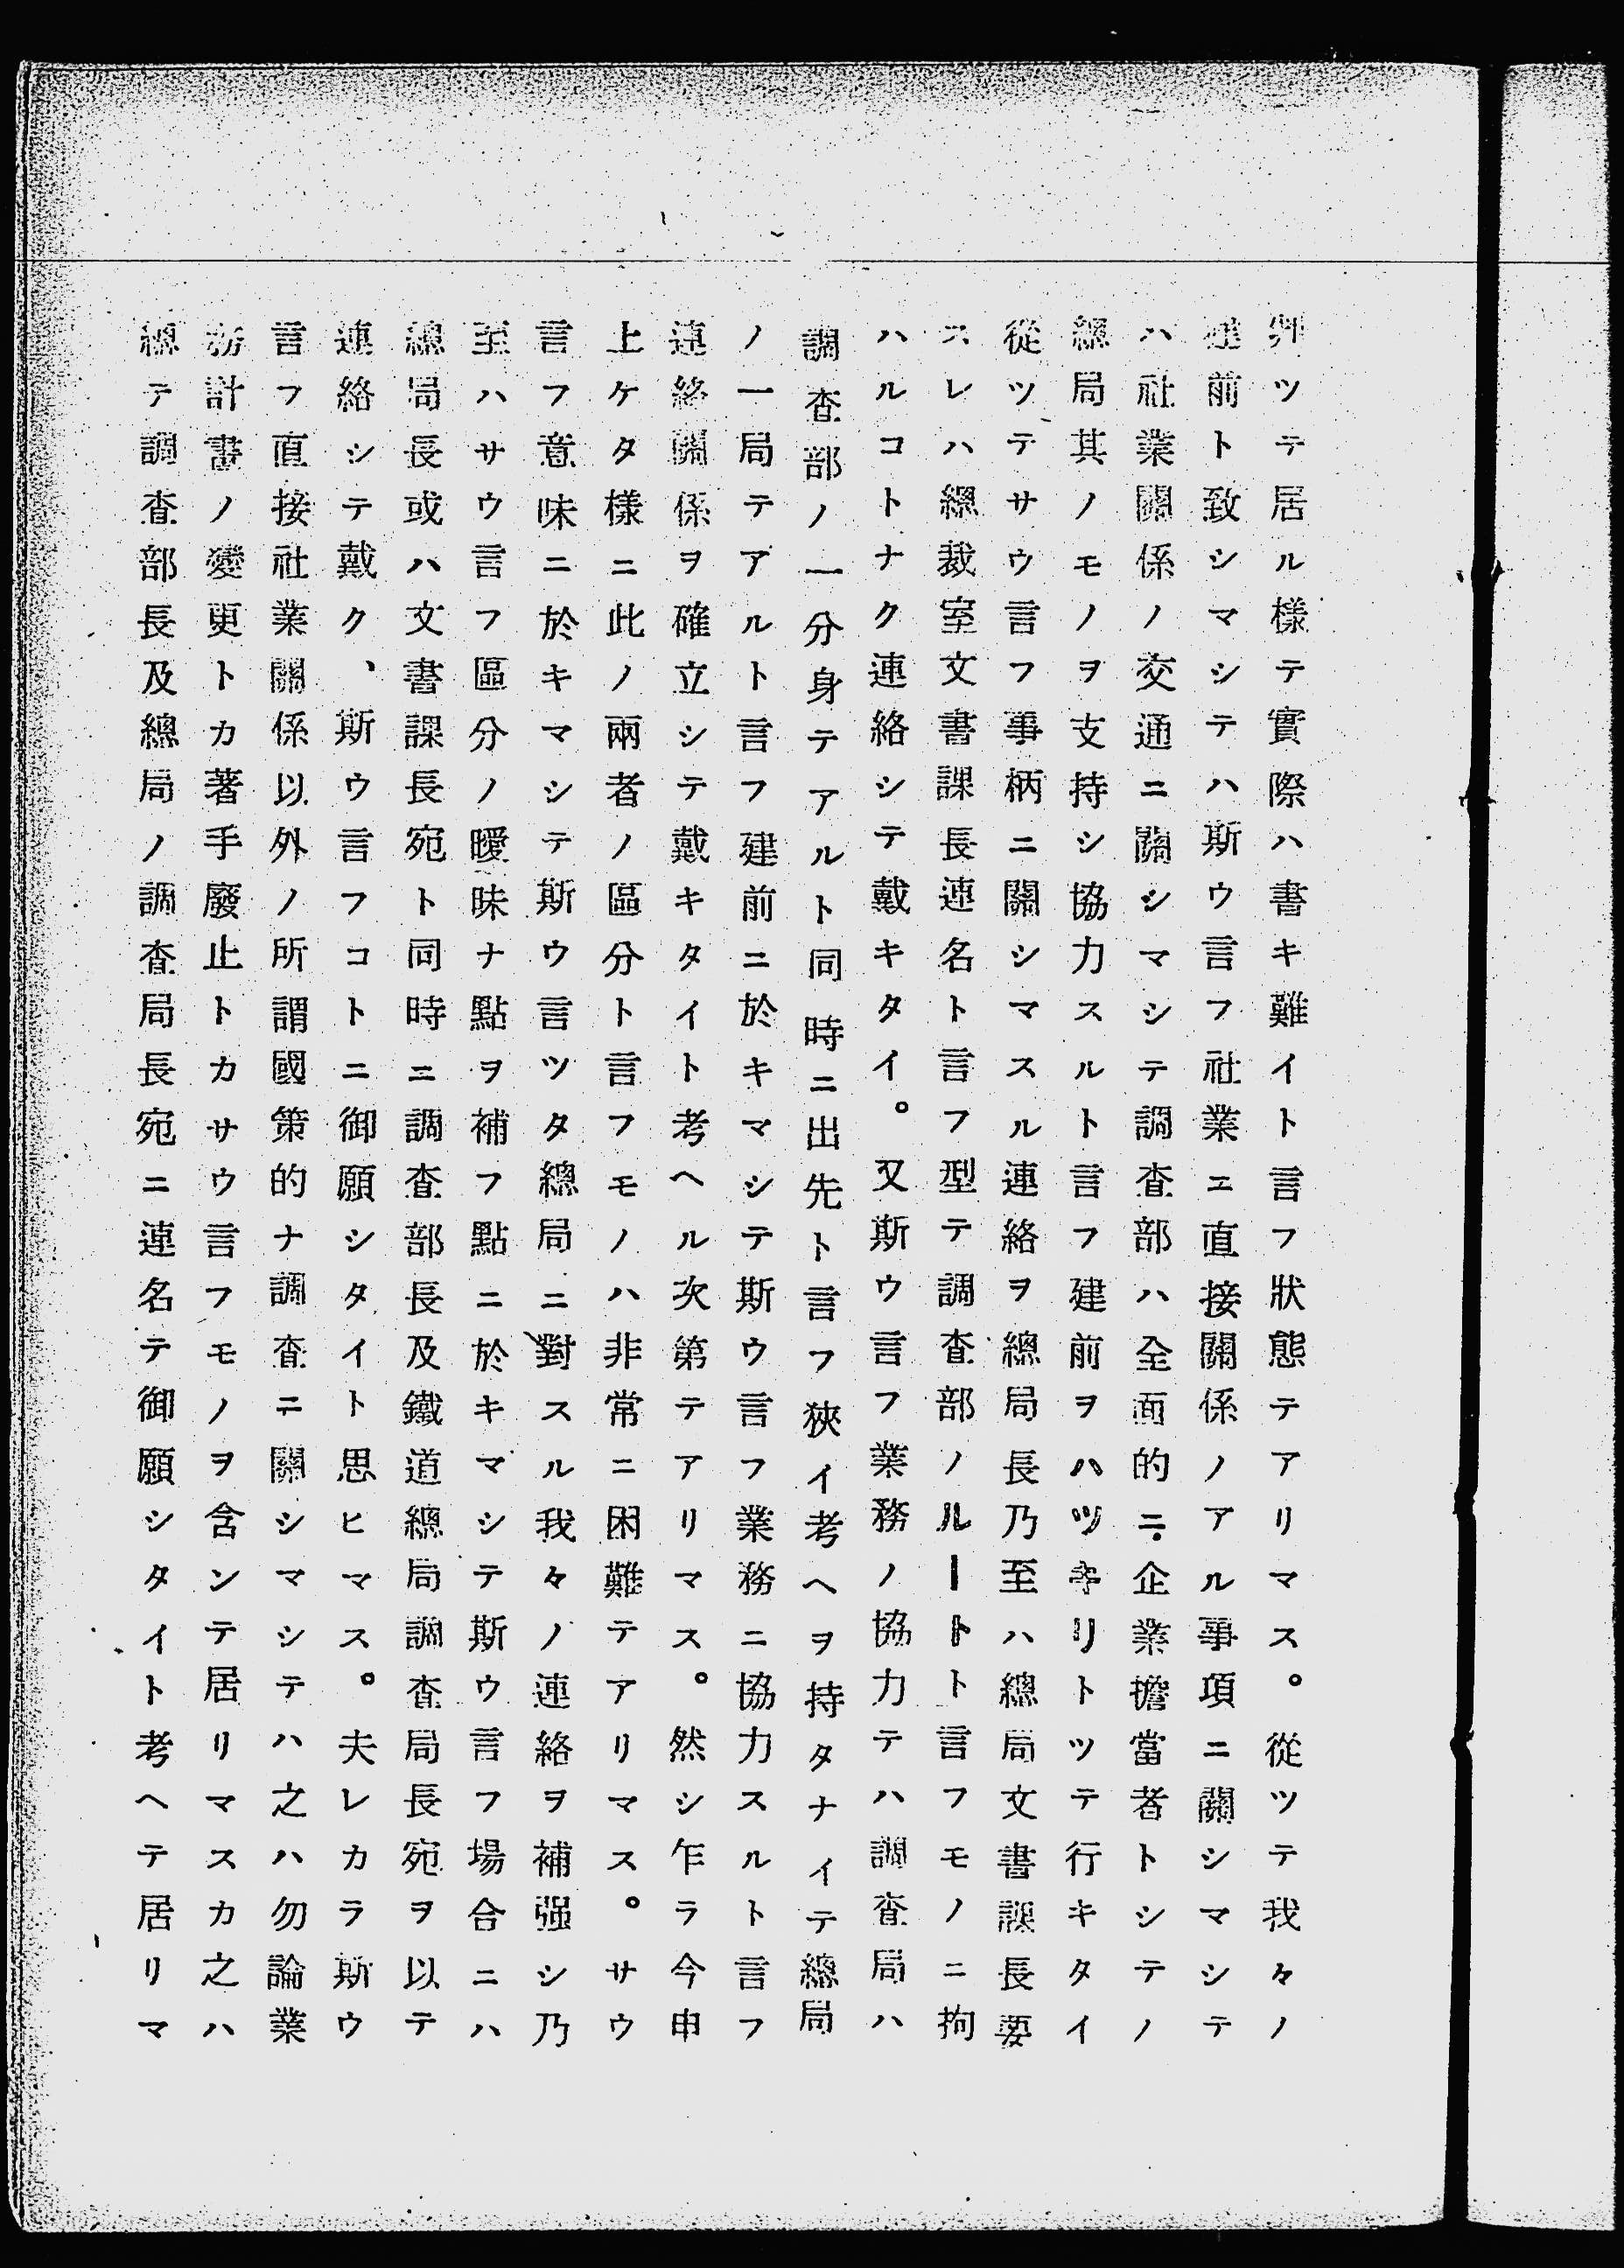 判ツテ居ル様テ實際ハ書キ難イト言フ狀態テアリマス。從ツテ我々ノ
建前ト致シマシテハ斯ウ言フ社業ニ直接關係ノアル事項ニ關シマシテ
ハ社業關係ノ交通ニ關シマシテ調査部ハ全面的ニ企業擔當者トシテノ
總局其ノモノヲ支持シ協力スルト言フ建前ヲハツキリトツテ行キタイ
從ツテサウ言フ事柄ニ關シマスル連絡ヲ總局長乃至ハ總局文書課長要
スレハ總裁室文書課長連名ト言フ型テ調査部ノルートト言フモノニ拘
ハルコトナク連絡シテ戴キタイ。又斯ウ言フ業務ノ協力テハ調査局ハ
調査部ノ一分身テアルト同時ニ出先ト言フ狹イ考ヘヲ持タナイテ總局
ノ一局テアルト言フ建前ニ於キマシテ斯ウ言フ業務ニ協力スルト言フ
連絡關係ヲ確立シテ戴キタイト考ヘル次第テアリマス。然シ乍ラ今申
上ケタ樣ニ此ノ兩者ノ區分ト言フモノハ非常ニ困難テアリマス。サウ
言フ意味ニ於キマシテ斯ウ言ツタ總局ニ對スル我々ノ連絡ヲ補强シ乃
至ハサウ言フ區分ノ曖昧ナ點ヲ補フ點ニ於キマシテ斯ウ言フ場合ニハ
總局長或ハ文書課長宛ト同時ニ調査部長及鐵道總局調査局長宛ヲ以テ
連絡シテ戴ク、斯ウ言フコトニ御願シタイト思ヒマス。夫レカラ斯ウ
言フ直接社業關係以外ノ所謂國策的ナ調査ニ關シマシテハ之ハ勿論業
務計畫ノ變更トカ著手廢止トカサウ言フモノヲ含ンテ居リマスカ之ハ
總テ調査部長及總局ノ調査局長宛ニ連名テ御願シタイト考ヘテ居リマ